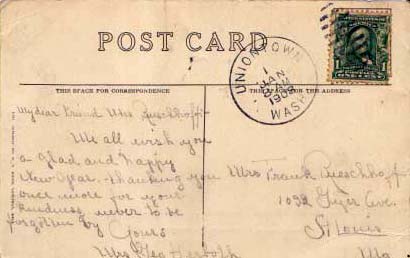 POST CARD
UNIONTOWN
JAN
1908
WASH.
1
THIS SPACE FOR CORRESPONDENCE
THIS SPACE FOR THE ADDRESS
My dear Friend Mrs Rueschhoff-
We all wish you
a Glad and happy
New Year. thanking you
once more for your
kindness, never to be
forgotten by Yours
Mrs Geo Herboth
Mrs Frank Rueschhoff
1032 Geyer Ave.
St Louis
Mo